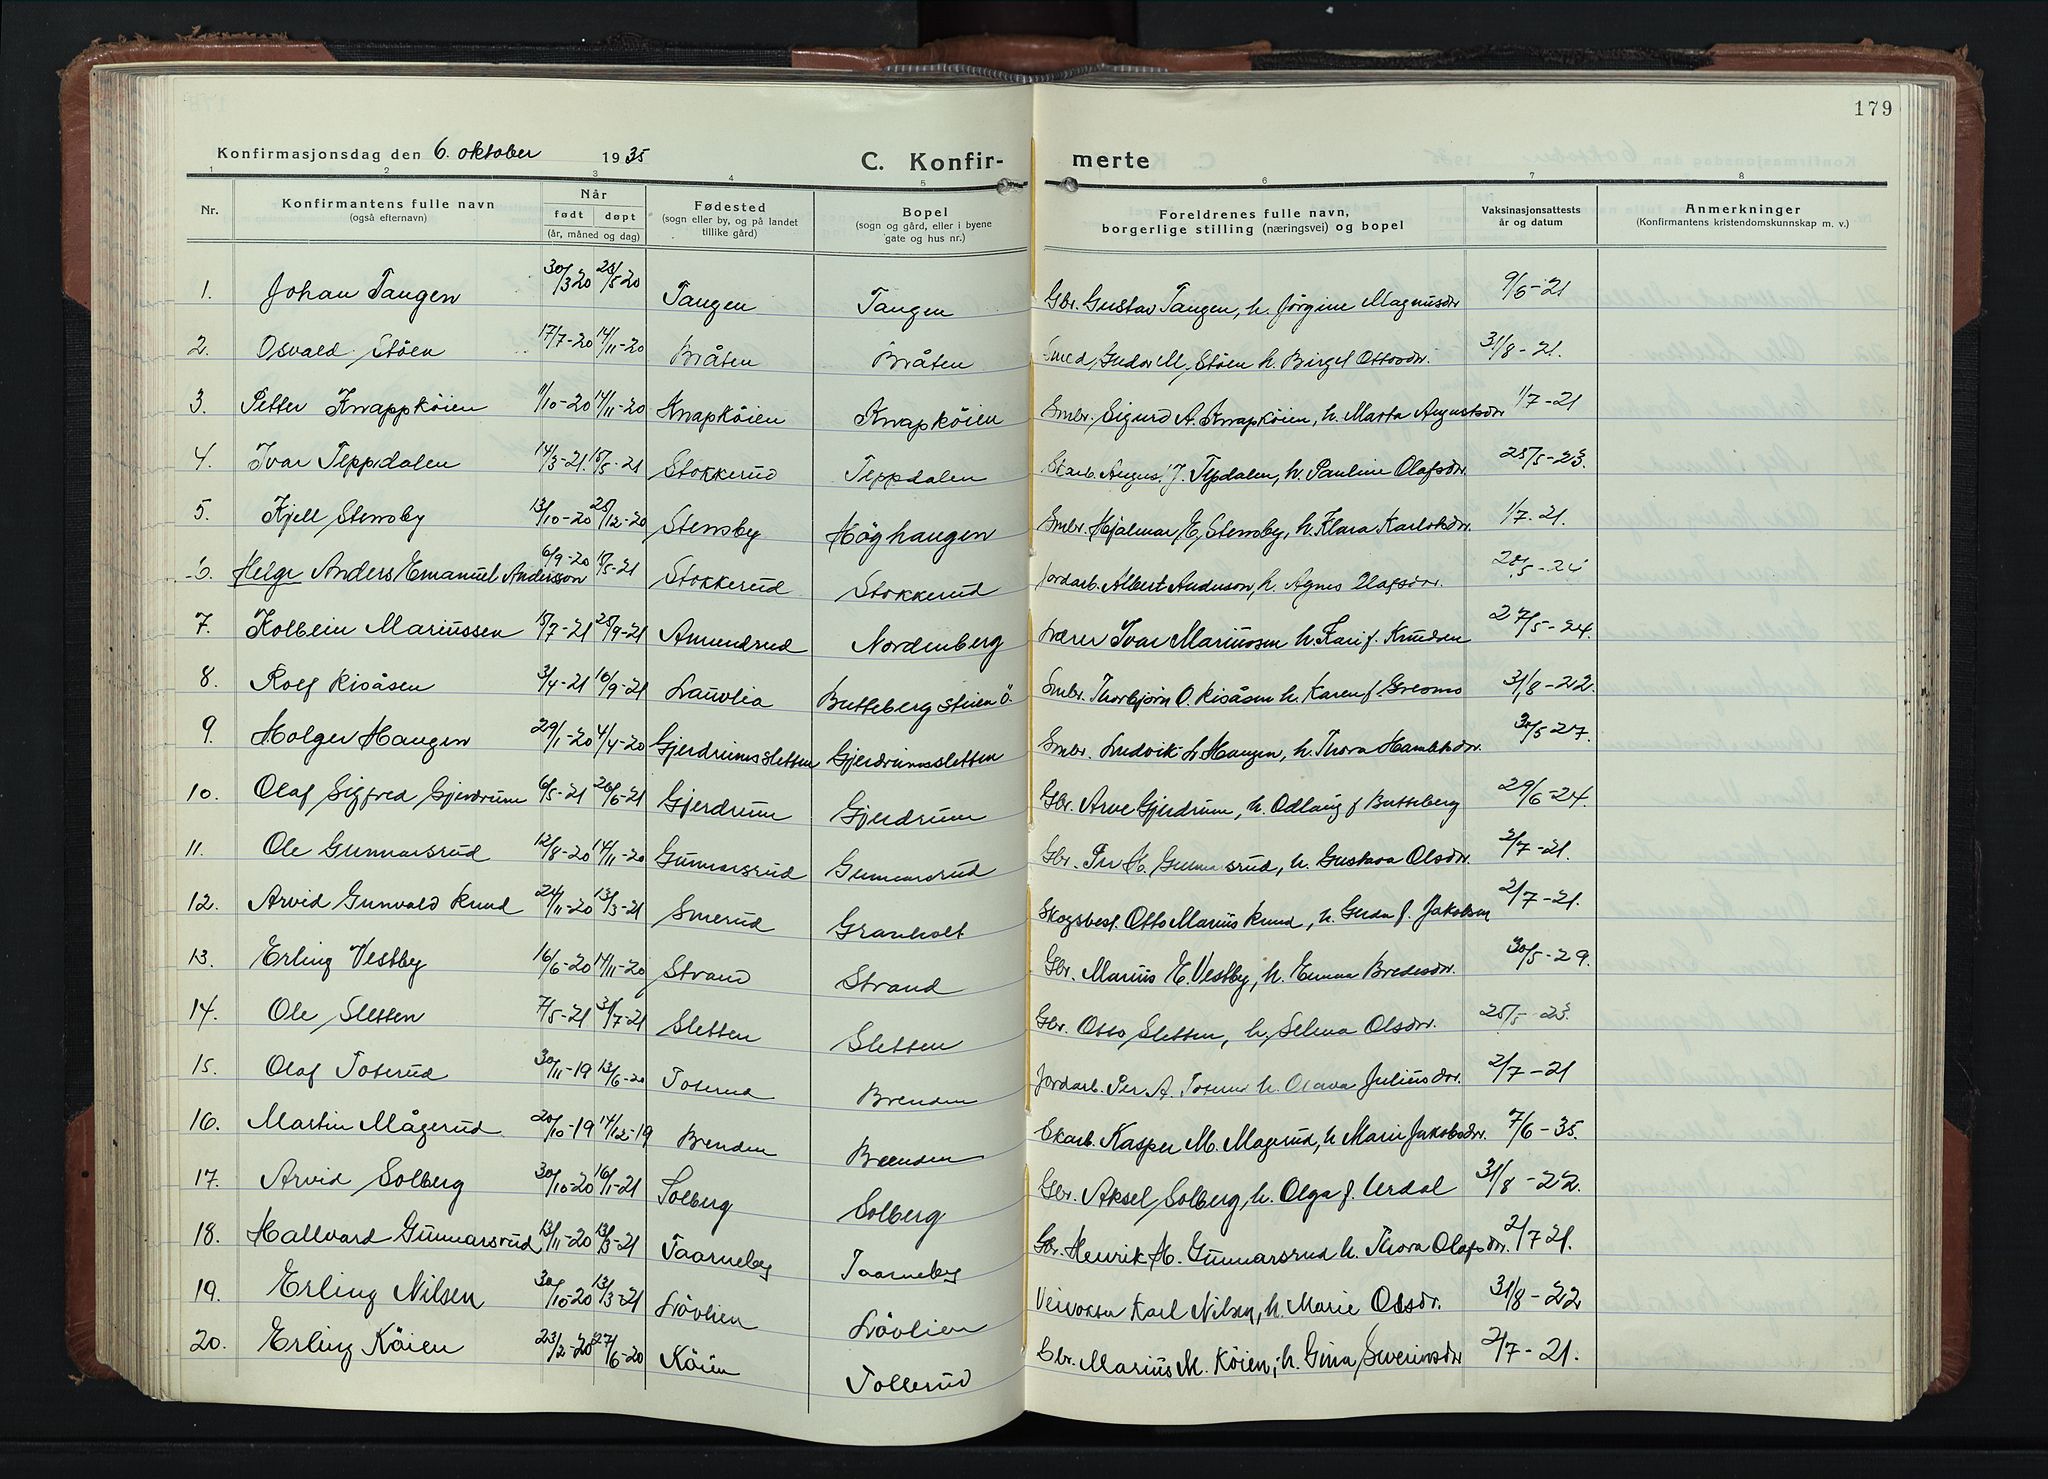 179
Konfirmasjonsdag den 6. oktober 1935 C. Konfir- merte
1 2 3 4 5 6 7 8
Nr. Konfirmantens fulle navn (også efternavn) Når født døpt (år, måned og dag) Fødested (sogn eller by, og på landet tillike gård) Bopel (sogn og gård, eller i byene gate og hus nr.) Foreldrenes fulle navn, borgerlige stilling (næringsvei) og bopel Vaksinasjonsattests år og datum Anmerkninger (Konfirmantens kristendomskunnskap m. v.)
1. Johan Tangen 30/3 20 24/5-20 Tangen Tangen Gbr. Gustav Tangen, h. Jörgine Magnusdr 9/6-21
2. Osvald Stöen 17/7-20 14/11-20 Bråten Bråten Smed, Gudor M. Stöen h. Birgit Ottosdr. 31/8-21.
3. Petter Knappköien 11/10-20 14/11-20 Knapköien Knapköien Smbr. Sigurd A. Knapköien, h. Marta Augustsdr 1/7-21
4. Ivar Teppdalen 14/3-21. 15/5-21 Stokkerud Teppdalen August J. Tepdalen, h. Pauline Olafsdr. 25/5-23.
5. Kjell Stensby 13/10-20 25/12-20 Stensby Höghaugen Smbr. Hjalmar E. Stensby, h. Klara Karlsdr. 1/7-21.
6. Helge Anders Emanuel Andersson 6/9-20 15/5-21 Stokkerud Stokkerud Jordarb. Albert Anderson, h. Agnes Olafsdr.
7. Kolbein Mariussen 15/7-21 25/9-21 Amundrud Nordenberg Lærer Ivar Mariussen h. Kari f. Knudsen 27/5-24.
8. Rolf Risåsen 3/4-21 10/9-21 Lauvlia Butteberg stuen Ö. Smbr. Thorbjörn O. Risåsen h. Karen f. Gresmo 31/8-22.
9. Holger Haugen 29/1-20 4/4-20 Gjerdrumssletten Gjerdrumssletten Smbr. Ludvik L. Haugen, h. Thora Hamletsdr. 30/5-27.
10. Olaf Sigfred Gjerdrum 6/5-21 26/6-21 Gjerdrum Gjerdrum Gbr. Arve Gjerdrum, h. Odlaug f Butteberg 29/6-24.
11. Ole Gunnarsrud 12/8-20 14/11-20 Gunnarsrud Gunnarsrud Gbr. H. Gunnarsrud, h. Gustava Olsdr. 2/7-21.
12. Arvid Gunvald Rund 24/11-20 13/3-21 Smerud Granholt Skogsbest. Otto Marius Rund, h. Gerda f. Jakobsen 2/7-21.
13. Erling Vestby 16/6-20 14/11-20 Strand Strand Gbr. Marius E. Vestby, h. Emma Bredesdr. 30/5-29.
14. Ole Sletten 7/5-21 31/7-21 Sletten Sletten Gbr. Otto Sletten, h. Selma Olsdr. 25/5-23.
15. Olaf Toterud 30/11-19 13/6-20 Toterud Brenden Jordarb. Per A. Toterud h. Olava Juliusdr. 2/7-21
16. Martin Mågerud 20/10-19 14/12-19 Brenden Brenden Skarb. Kasper M. Magerud, h Marie Jakobsdr. 7/6-35.
17. Arvid Solberg 30/10-20 16/1-21 Solberg Solberg Gbr. Aksel Solberg, h. Olga f. Urdal 31/8-22.
18. Hallvard Gunnarsrud 13/11-20 13/3-21 Taarneby Taarneby Gbr. Henrik H. Gunnarsrud h. Thora Olafsdr. 2/7 21.
19. Erling Nilsen 30/10-20 13/3-21 Lövlien Lövlien Veivokter Karl Nilsen, h. Marie Olsdr. 31/8-22
20. Erling Köien 23/2-20 27/6-20 Köien Tollerud Gbr. Marius M. Köien, h. Gina Sverinsdr 2/7-21.